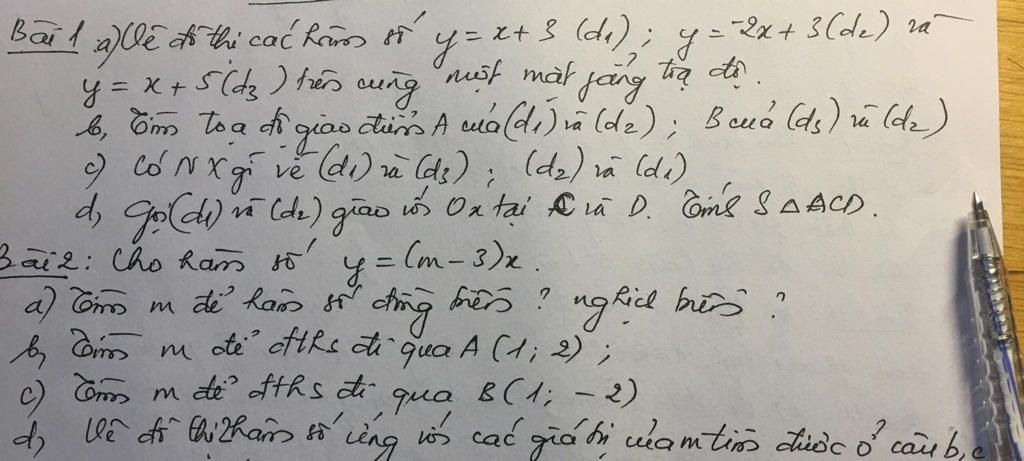 Bài 1 a) Vẽ đồ thị các hàm số y = x + 3 (d1) ; y = -2x + 3 (d2) và
y = x + 5 (d3) trên cùng một mặt fẳng tọa độ.
b, Tìm toạ độ giao điểm A của (d1) và (d2) ; B của (d3) và (d2)
c) Có NX gì về (d1) và (d3) ; (d2) và (d1)
d, Gọi (d1) và (d2) giao với Ox tại C và D. Tính S △ ACD.
Bài 2 : Cho hàm số y = (m - 3)x .
a) Tìm m để hàm số đồng biến ? nghịch biến ?
b, Tìm m để đths đi qua A (1 ; 2) ;
c) Tìm m để đths đi qua B (1 ; - 2)
d, Vẽ đồ thị 2 hàm số ứng với các giá trị của m tìm được ở câu b, c